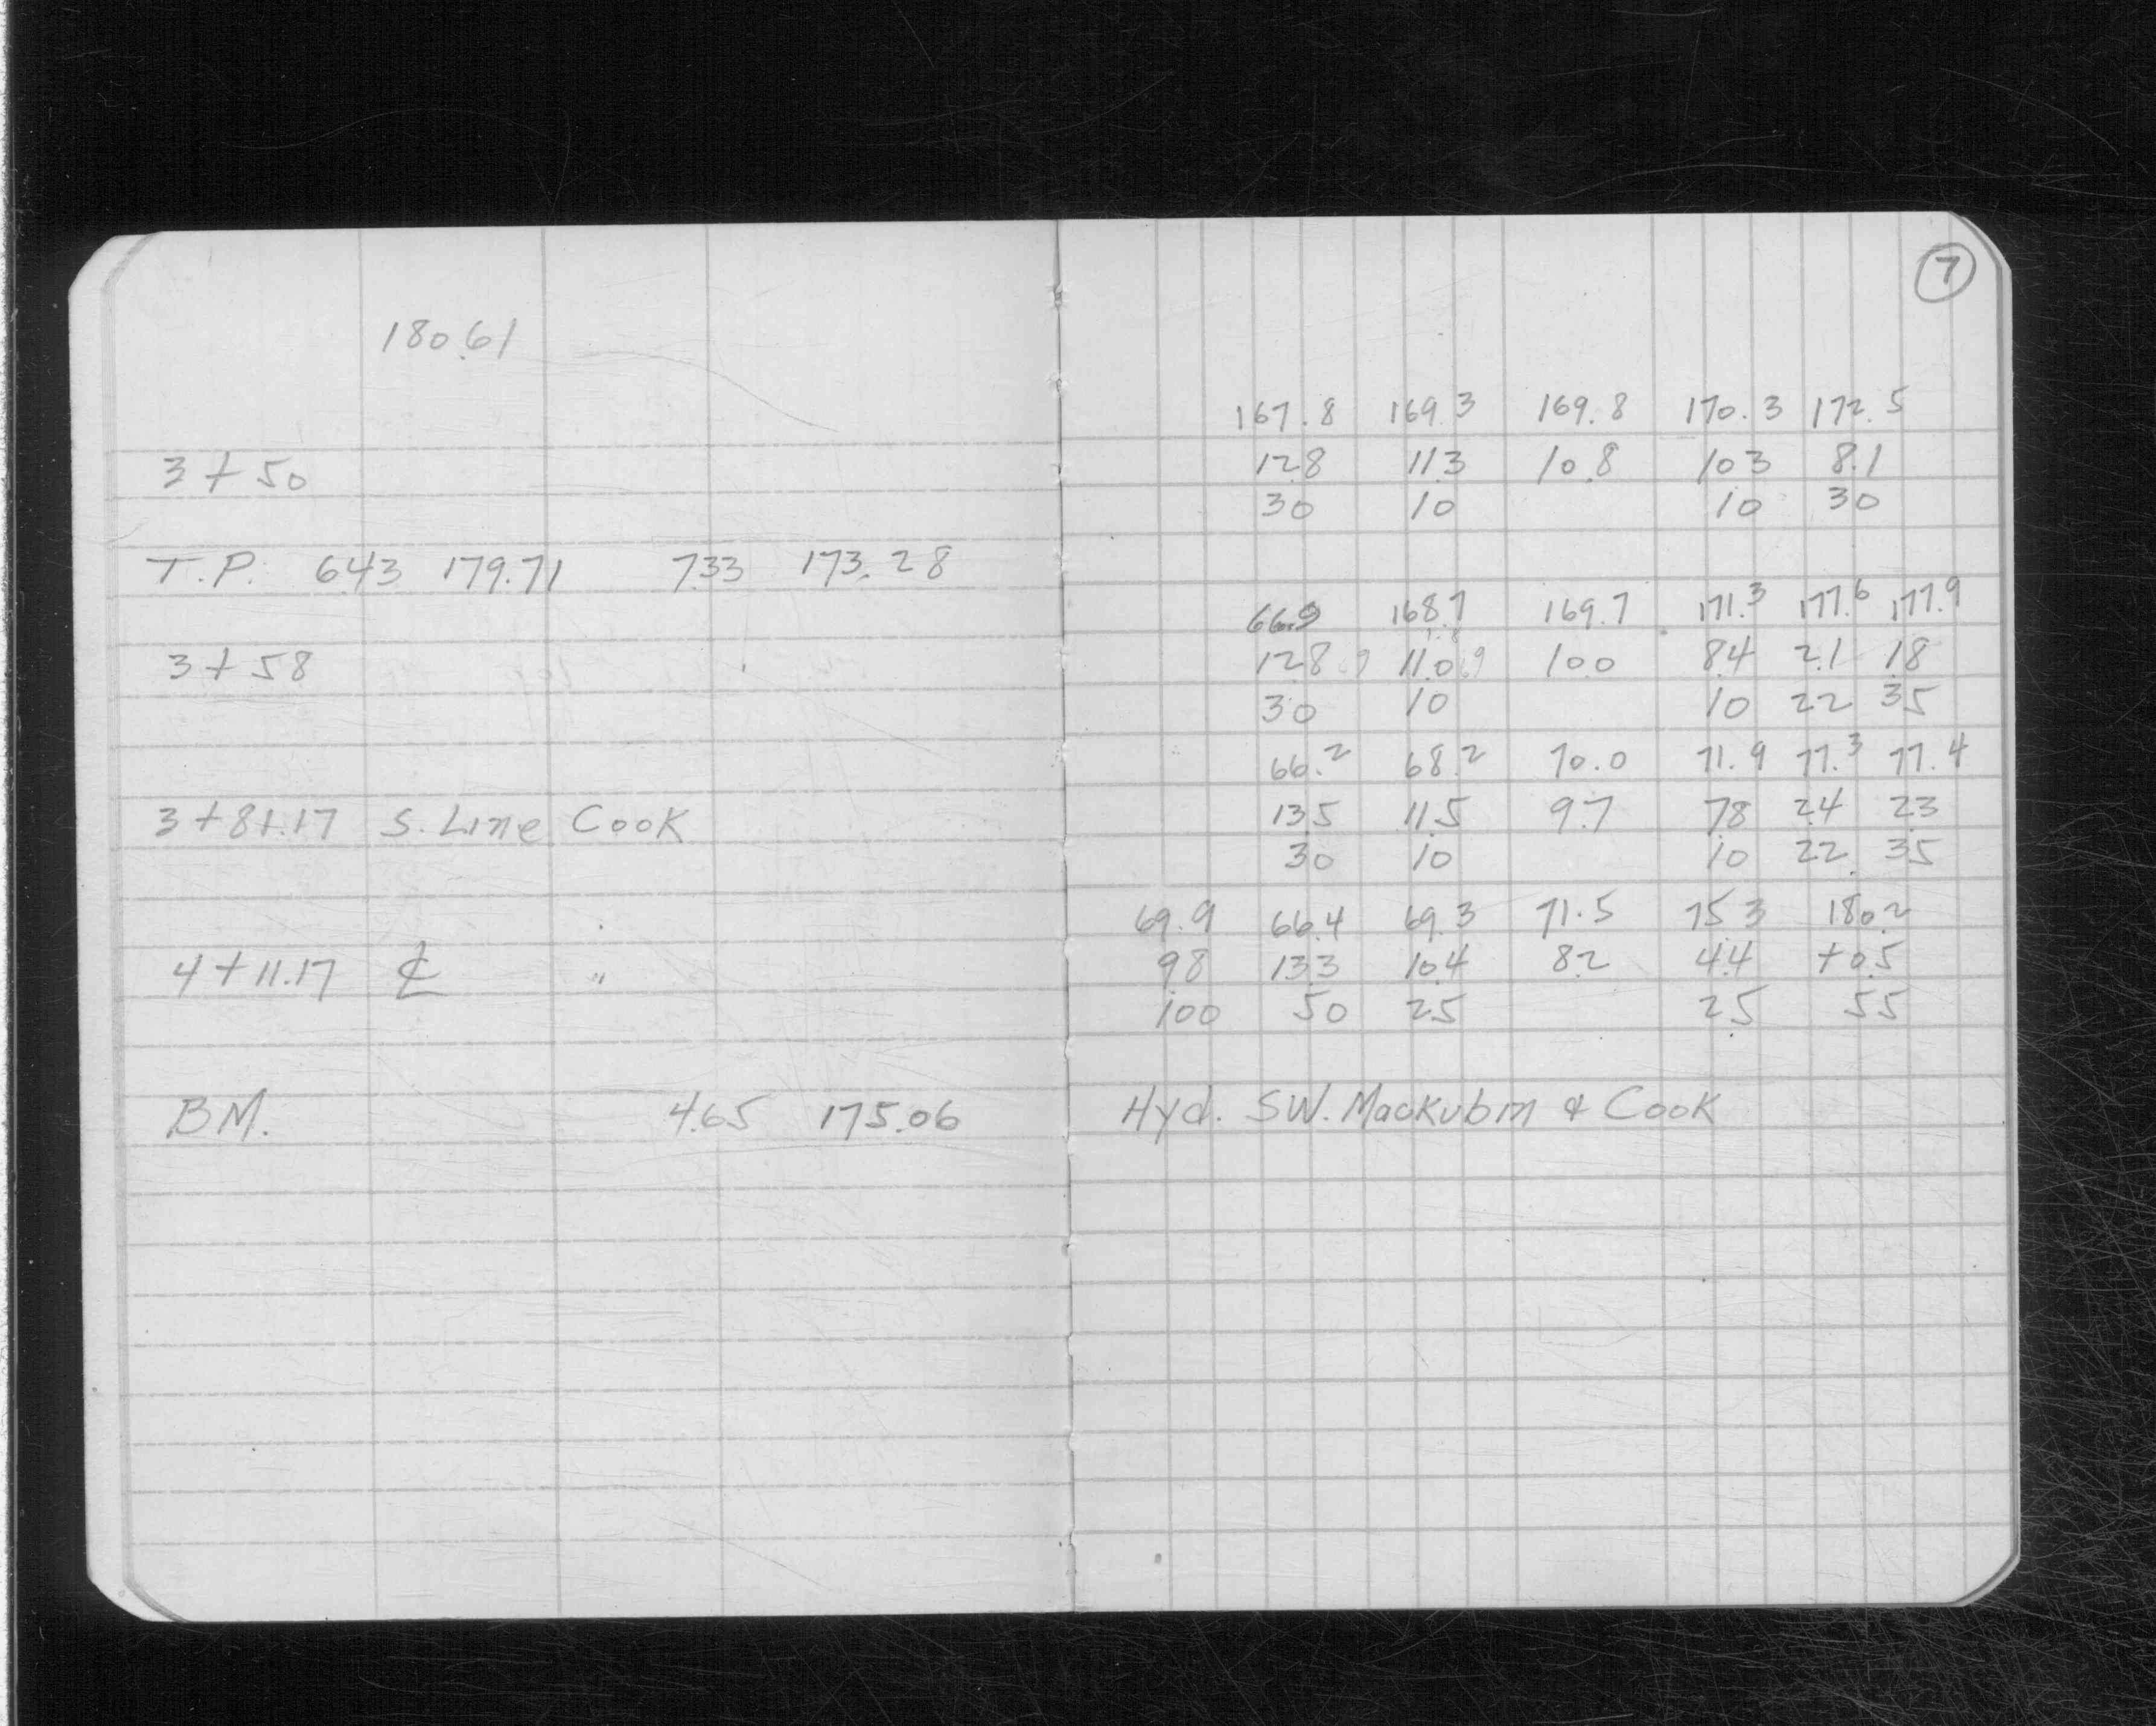 7
180.61
167.8 169.3 169.8 170.3 172.5
3+50 12.8 11.3 10.8 10.3 8.1
30 10 10 30
T.P. 6.43 179.71 7.33 173.28
66.9 168.7 169.7 171.3 177.6 177.9
3+58 12.8 11.0 10.0 8.4 2.1 1.8
30 10 10 22 35
66.2 68.2 70.0 71.9 77.3 77.4
3+81.17 S. Line Cook 13.5 11.5 9.7 7.8 2.4 2.3
30 10 10 22 35
69.9 66.4 69.3 71.5 75.3 180.2
4+11.17 ℄ " 9.8 13.3 10.4 8.2 4.4 +0.5
100 50 25 25 55
BM. 4.65 175.06 Hyd. SW. Mackubin & Cook